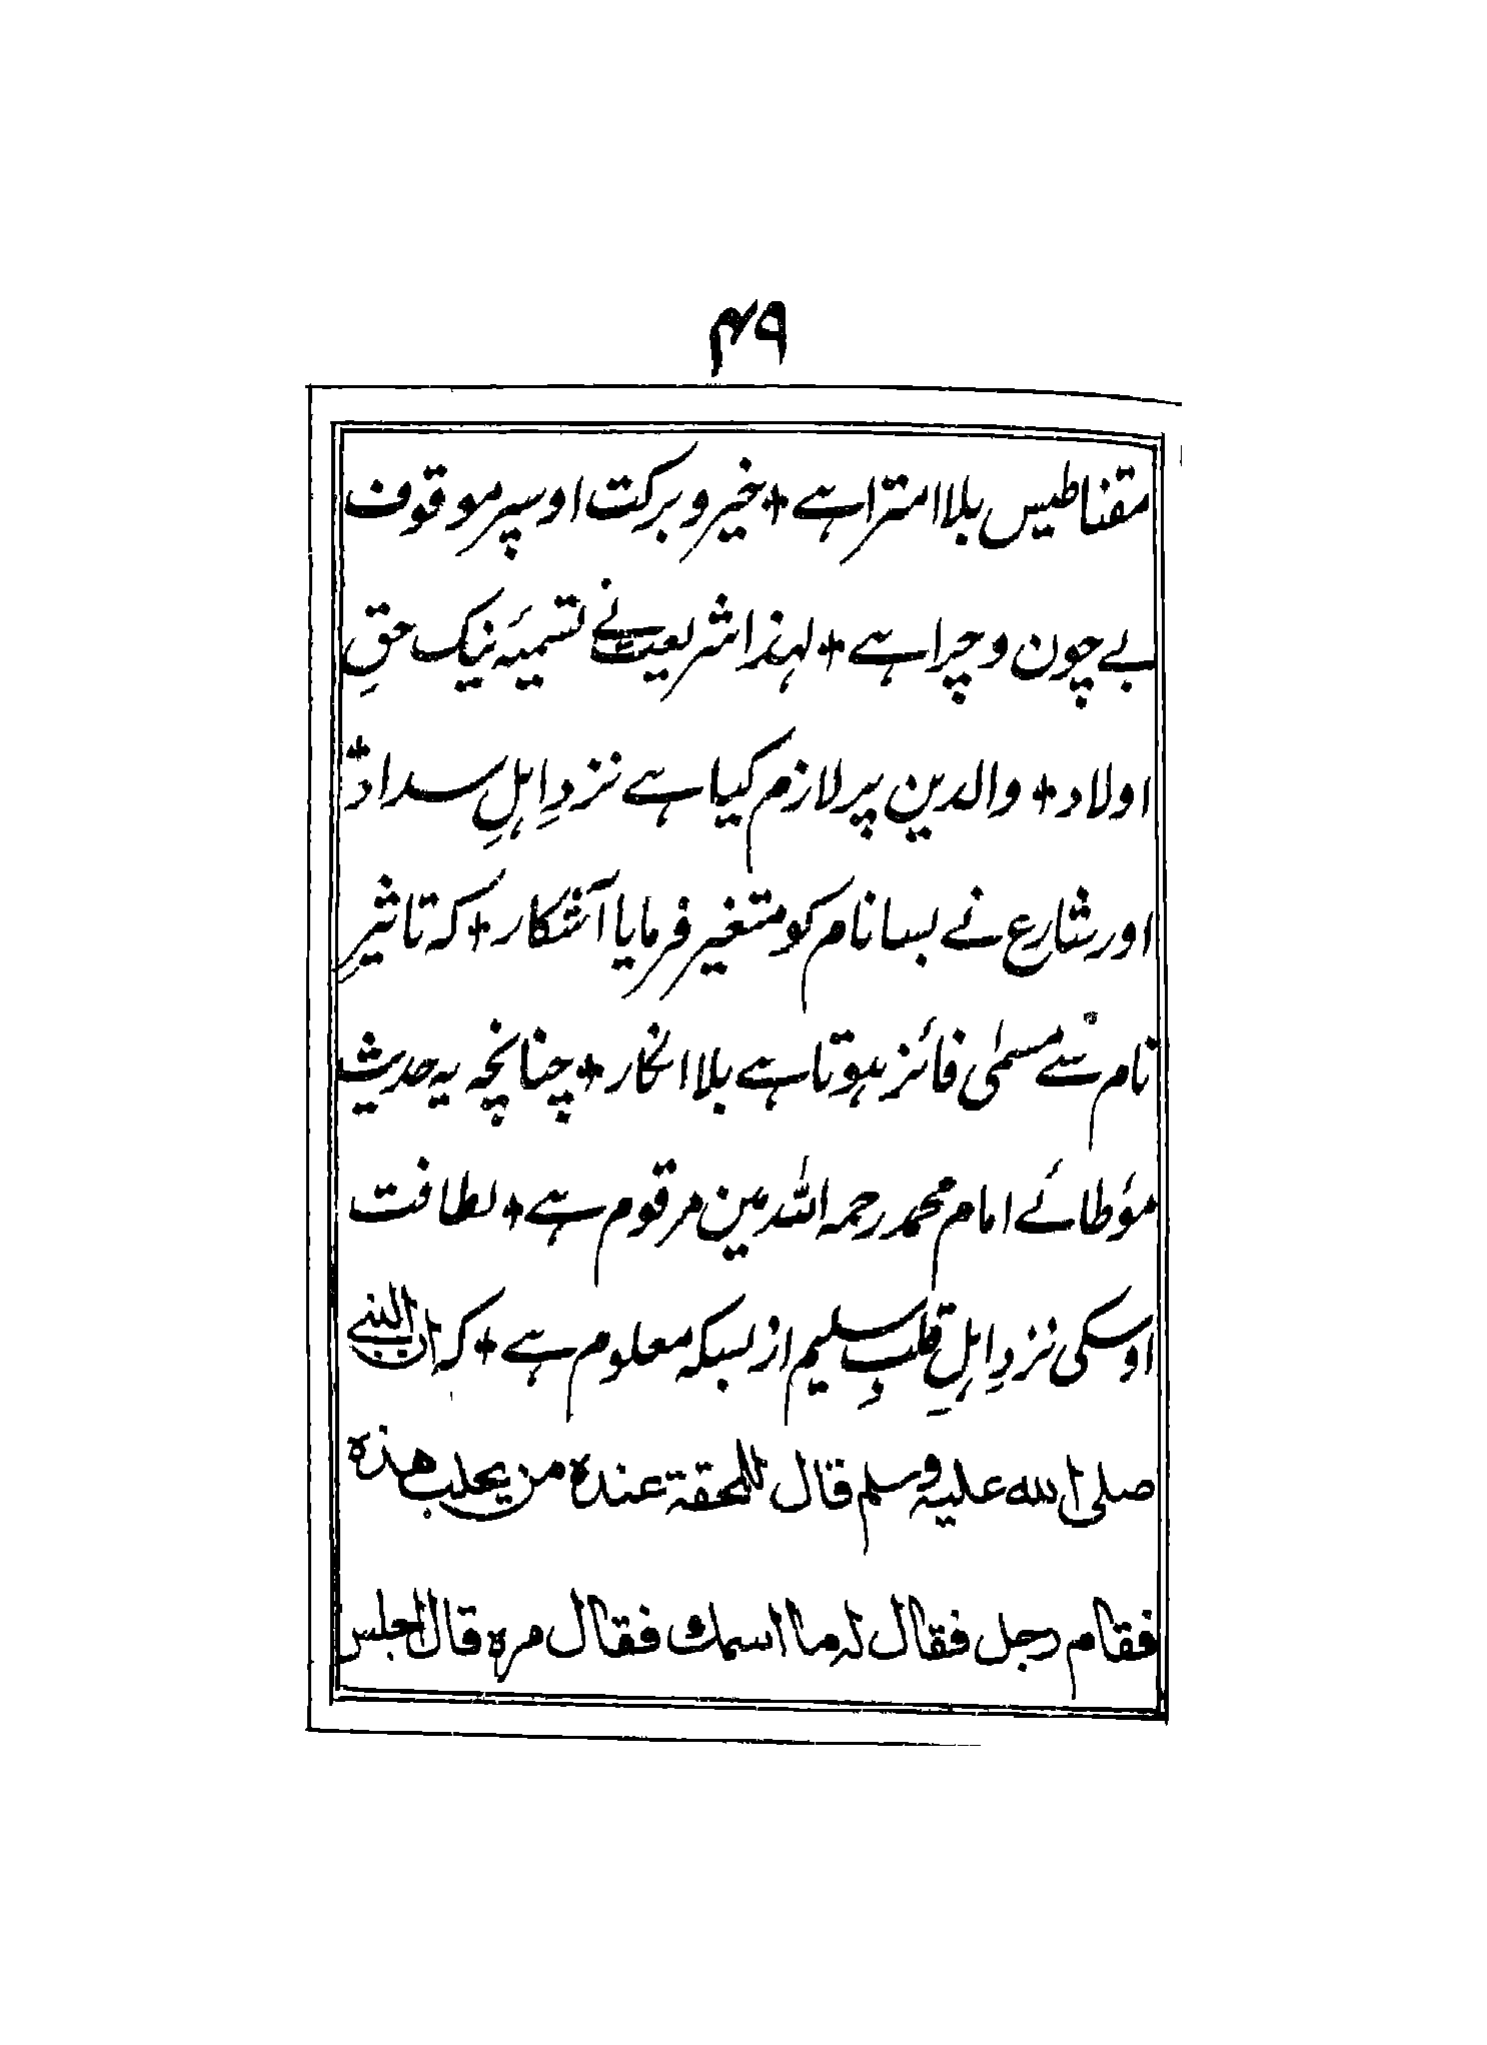 ۴۹
مقناطیس بلا امترا ہے ٭ خیر و برکت اوسپر موقوف
بے چون و چرا ہے ٭ لہذا شریعت نے تسمیۂ نیک حقِ
اولاد ٭ والدین پر لازم کیا ہے نزدِ اہلِ سداد ٭
اور شارع نے بسا نام کو متغیر فرمایا آشکار ٭ کہ تاثیرِ
نام سے مسمیٰ فائز ہوتا ہے بلا انکار ٭ چنانچہ یہ حدیث
مؤطائے امام محمد رحمہ اللہ مین مرقوم ہے ٭ لطافت
اوسکی نزدِ اہلِ قلبِ سلیم از بسکہ معلوم ہے ٭ کہ ان النبی
صلی الله علیہ وسلم قال للحقة عنده من یحلب هذه
فقام رجل فقال له ما اسمك فقال مرة قال اجلس